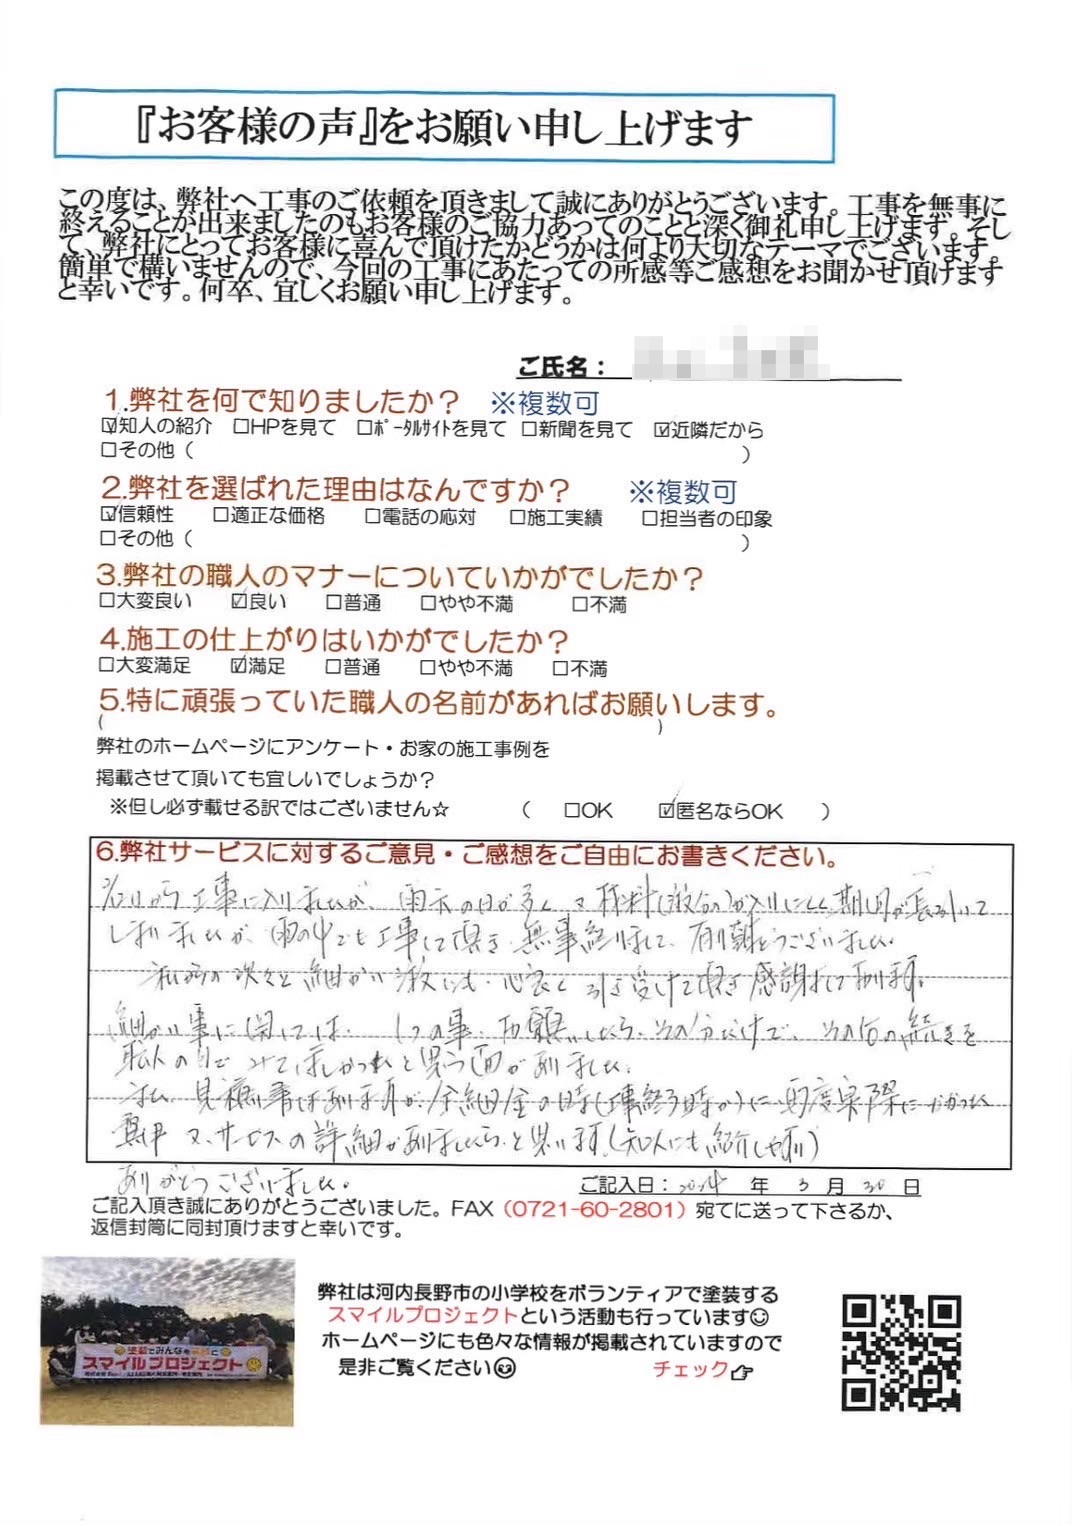 『お客様の声』をお願い申し上げます
この度は、弊社へ工事のご依頼を頂きまして誠にありがとうございます。工事を無事に
終えることが出来ましたのもお客様のご協力あってのことと深く御礼申し上げます。そし
て、弊社にとってお客様に喜んで頂けたかどうかは何より大切なテーマでございます。
簡単で構いませんので、今回の工事にあたっての所感等ご感想をお聞かせ頂けます
と幸いです。何卒、宜しくお願い申し上げます。
ご氏名：
1.弊社を何で知りましたか？ ※複数可
☑知人の紹介 □HPを見て □ﾎﾟｰﾀﾙｻｲﾄを見て □新聞を見て ☑近隣だから
□その他（ ）
2.弊社を選ばれた理由はなんですか？ ※複数可
☑信頼性 □適正な価格 □電話の応対 □施工実績 □担当者の印象
□その他（ ）
3.弊社の職人のマナーについていかがでしたか？
□大変良い ☑良い □普通 □やや不満 □不満
4.施工の仕上がりはいかがでしたか？
□大変満足 ☑満足 □普通 □やや不満 □不満
5.特に頑張っていた職人の名前があればお願いします。
（ ）
弊社のホームページにアンケート・お家の施工事例を
掲載させて頂いても宜しいでしょうか？
※但し必ず載せる訳ではございません☆ （ □OK ☑匿名ならOK ）
6.弊社サービスに対するご意見・ご感想をご自由にお書きください。
から工事に入りましたが、雨天の日が多く 又 材料が入りにくく、期間が長引いて
しまいましたが、雨の中でも工事して頂き 無事終りまして、有難とうございました。
次々と細かい にも 心良く 引き受けて頂き 感謝して おります。
細かい事に関しては、1つの事、お願いしたら、その分だけで、その后の続きを
職人の目で みてほしかったと思う面がありました。
又、見積り書はありますが、余細金の時(工事終了時か)に、再度実際にかかった
費用 又、サービスの詳細がありましたら、と思います。(知人にも紹介し)
ありがとうございました。
ご記入日：2024 年 3 月 30 日
ご記入頂き誠にありがとうございました。FAX（0721-60-2801）宛てに送って下さるか、
返信封筒に同封頂けますと幸いです。
弊社は河内長野市の小学校をボランティアで塗装する
スマイルプロジェクトという活動も行っています
ホームページにも色々な情報が掲載されていますので
是非ご覧ください
チェック
塗装でみんなを笑顔に
スマイルプロジェクト